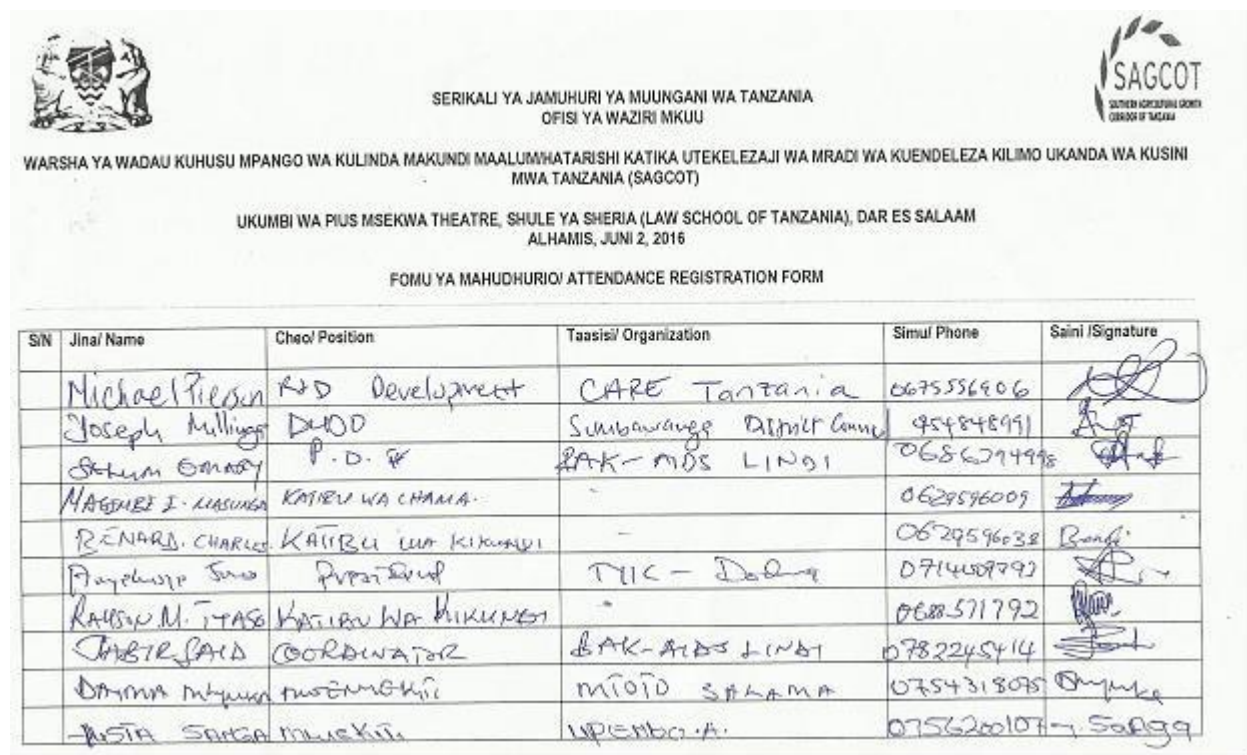 SAGCOT
SOUTHERN AGRICULTURAL GROWTH
CORRIDOR OF TANZANIA
SERIKALI YA JAMUHURI YA MUUNGANI WA TANZANIA
OFISI YA WAZIRI MKUU
WARSHA YA WADAU KUHUSU MPANGO WA KULINDA MAKUNDI MAALUM/HATARISHI KATIKA UTEKELEZAJI WA MRADI WA KUENDELEZA KILIMO UKANDA WA KUSINI
MWA TANZANIA (SAGCOT)
UKUMBI WA PIUS MSEKWA THEATRE, SHULE YA SHERIA (LAW SCHOOL OF TANZANIA), DAR ES SALAAM
ALHAMIS, JUNI 2, 2016
FOMU YA MAHUDHURIO/ ATTENDANCE REGISTRATION FORM
S/N Jina/ Name Cheo/ Position Taasisi/ Organization Simu/ Phone Saini /Signature
Michael Pierson R&D Development CARE Tanzania 0675556906
Joseph Millinga Sumbawanga District 954848991
P.D. LINDI 0686294998
KATIBU WA CHAMA. - 0629596009
BENARD. CHARLES. KATIBU WA KIKUNDI - 0629596038
President
KATIBU WA KIKUNDI - 0688571792
JABIR SAID COORDINATOR BAK-AIDS LINDI 0782245414
MTOTO SALAMA 0754318095
SANGA 0756200107 Sanga